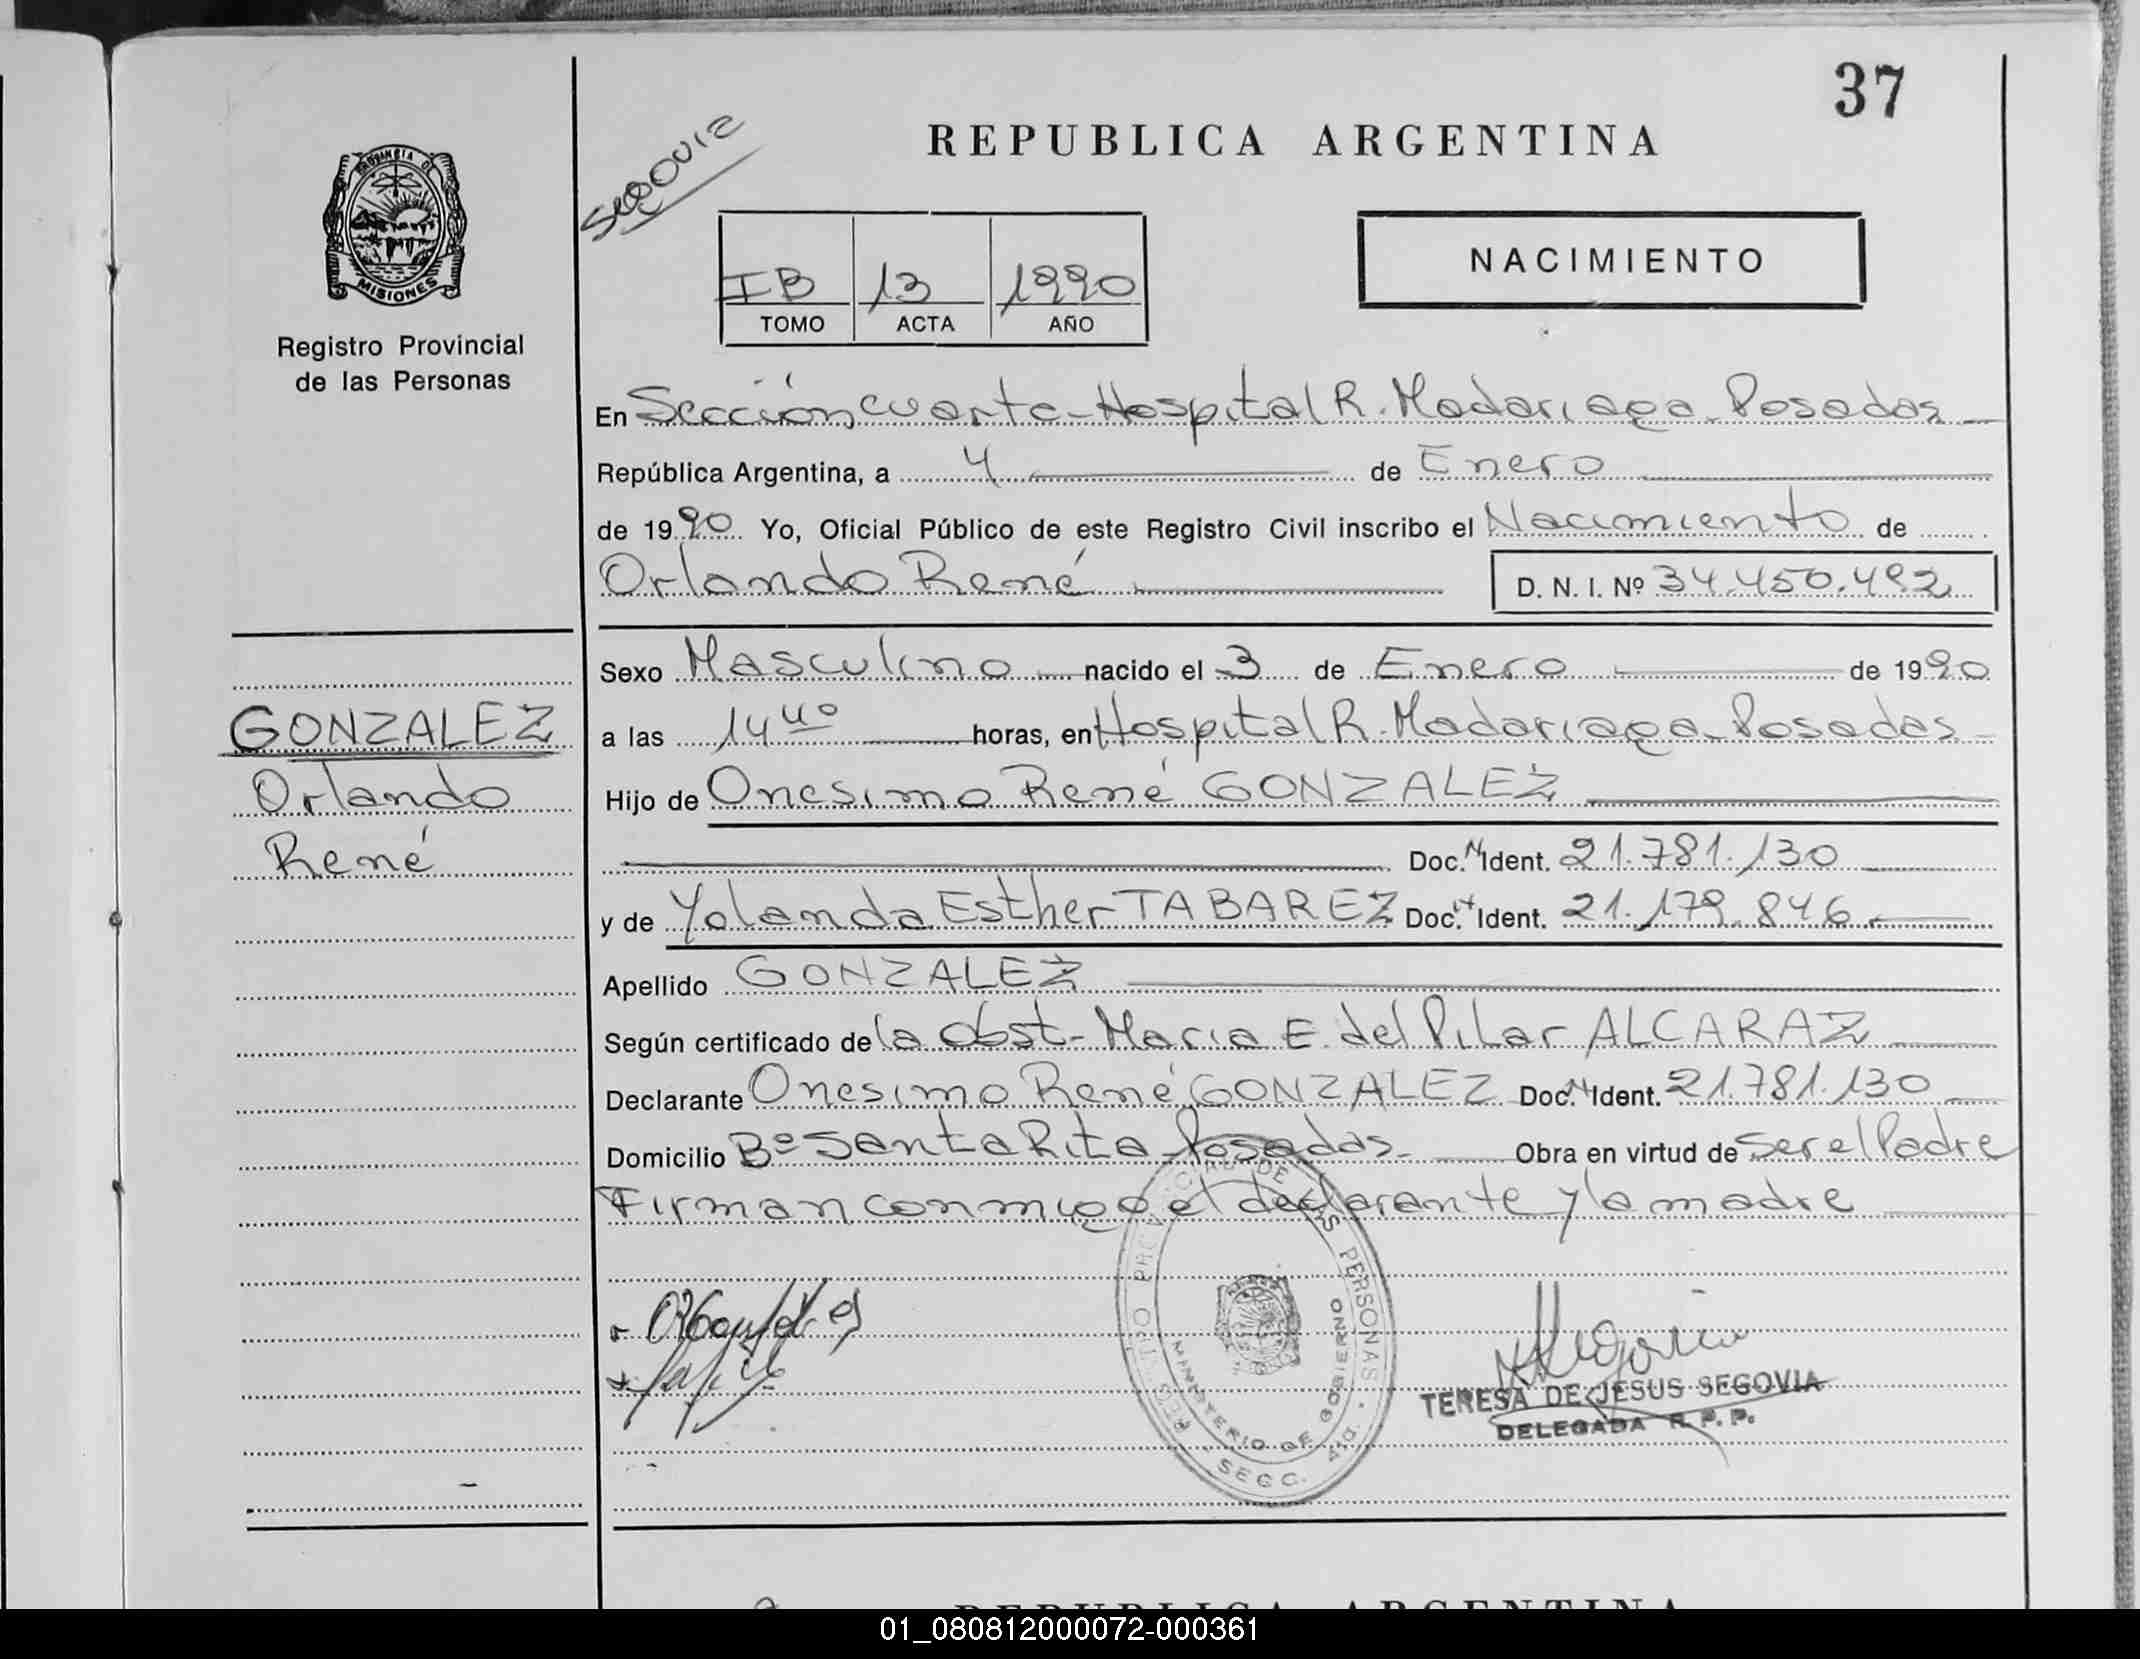 37
REPUBLICA ARGENTINA
PROVINCIA DE
MISIONES
Registro Provincial
de las Personas
IB 13 1990
TOMO ACTA AÑO
NACIMIENTO
En Sección cuarta - Hospital R. Madariaga - Posadas
República Argentina, a 4 de Enero
de 1990 Yo, Oficial Público de este Registro Civil inscribo el Nacimiento de
Orlando René D. N. I. Nº 34.450.492
Sexo Masculino nacido el 3 de Enero de 1990
GONZALEZ
Orlando
René
a las 14 40 horas, en Hospital R. Madariaga - Posadas
Hijo de Onesimo René GONZALEZ
Doc. N Ident. 21.781.130
y de Yolanda Esther TABAREZ Doc. N Ident. 21.179.846
Apellido GONZALEZ
Según certificado de la Obst - Maria E. del Pilar ALCARAZ
Declarante Onesimo René GONZALEZ Doc. N Ident. 21.781.130
Domicilio Bº Santa Rita - Posadas - Obra en virtud de Ser el Padre
Firman conmigo el declarante y la madre
REGISTRO PROVINCIAL DE LAS PERSONAS
MINISTERIO DE GOBIERNO
SECC. 4ta.
TERESA DE JESUS SEGOVIA
DELEGADA R. P. P.
REPUBLICA ARGENTINA
01_080812000072-000361